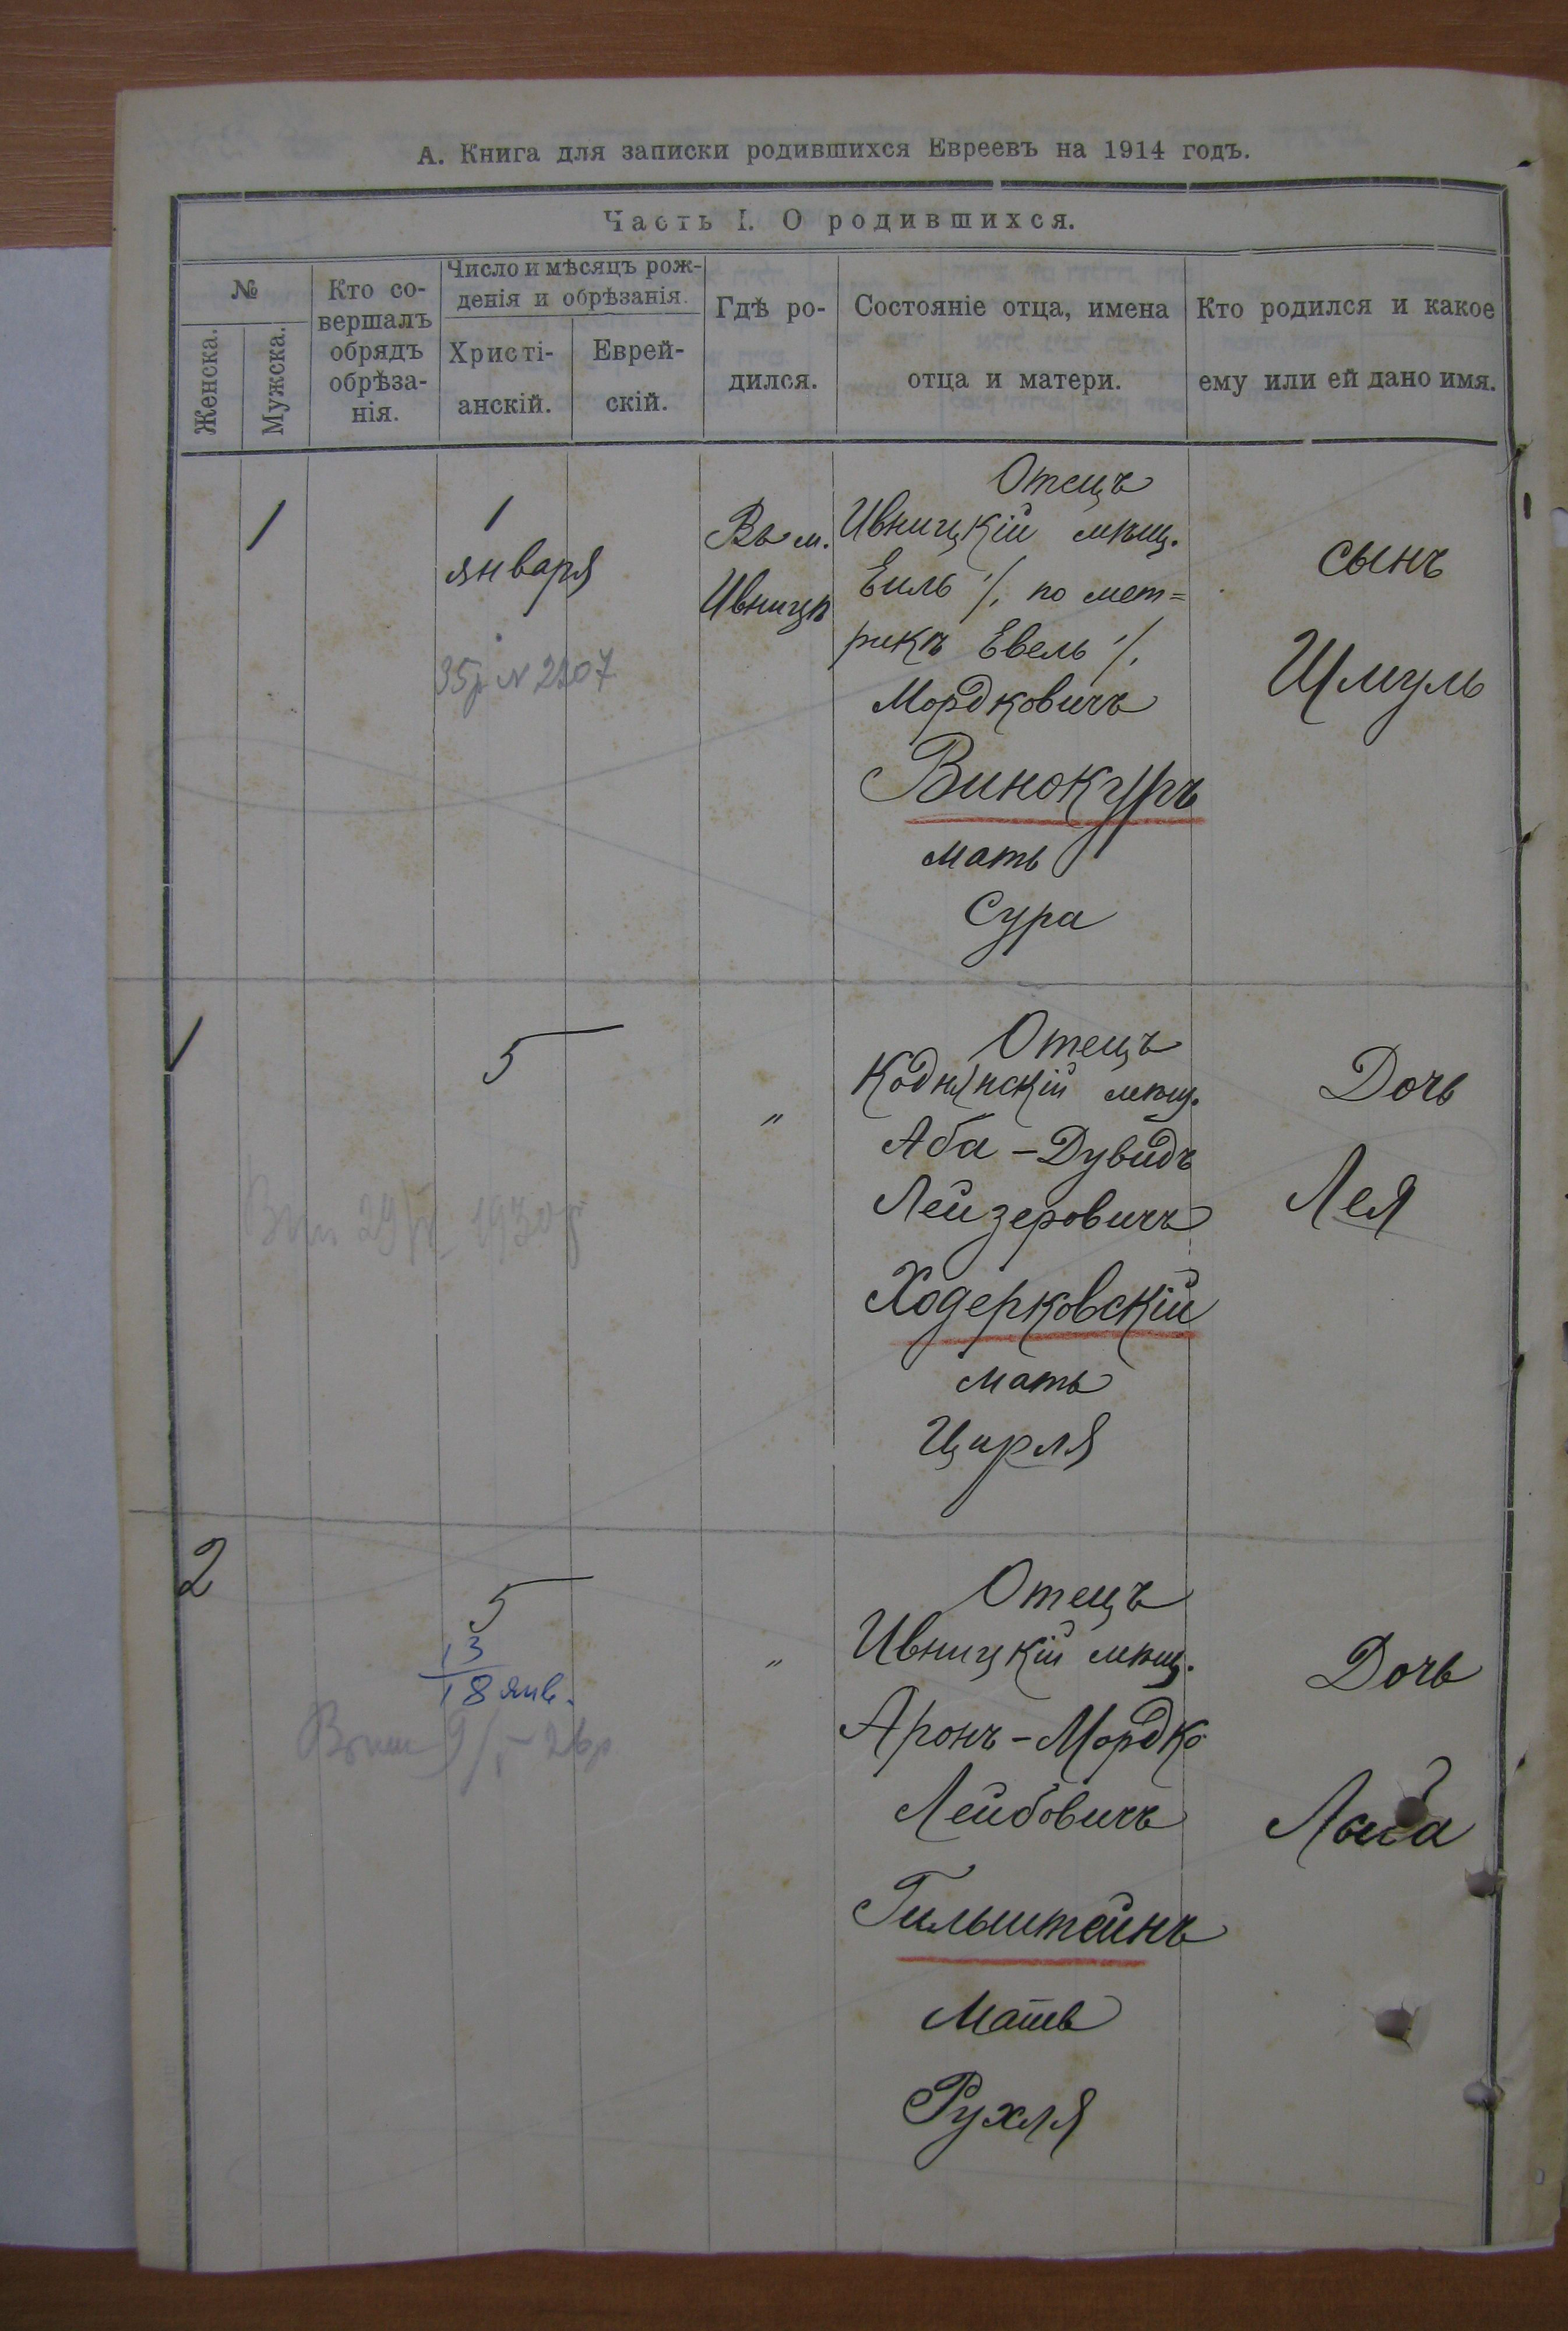 А. Книга для записки родившихся Евреевъ на 1914 годъ.
Часть I. О родившихся.
№
Женска.
Мужска.
Кто со-
вершалъ
обрядъ
обрѣза-
нія.
Число и мѣсяцъ рож-
денія и обрѣзанія.
Христі-
анскій.
Еврей-
скій.
Гдѣ ро-
дился.
Состояніе отца, имена
отца и матери.
Кто родился и какое
ему или ей дано имя.
1
1
января
35г № 2207
Въ м.
Ивницѣ
Отецъ
Ивницкій мѣщ.
Еиль ·/. по мет=
рикѣ Евель ·/.
Мордковичъ
Винокуръ
мать
Сура
сынъ
Шмуль
1
5
1930г
"
Отецъ
Коднянскій мѣщ.
Аба-Дувидъ
Лейзеровичъ
Ходерковскій
мать
Цирля
Дочь
Лея
2
5
13
18 янв.
"
Отецъ
Ивницкій мѣщ.
Аронъ-Мордко
Лейбовичъ
Гильштейнъ
Мать
Рухля
Дочь